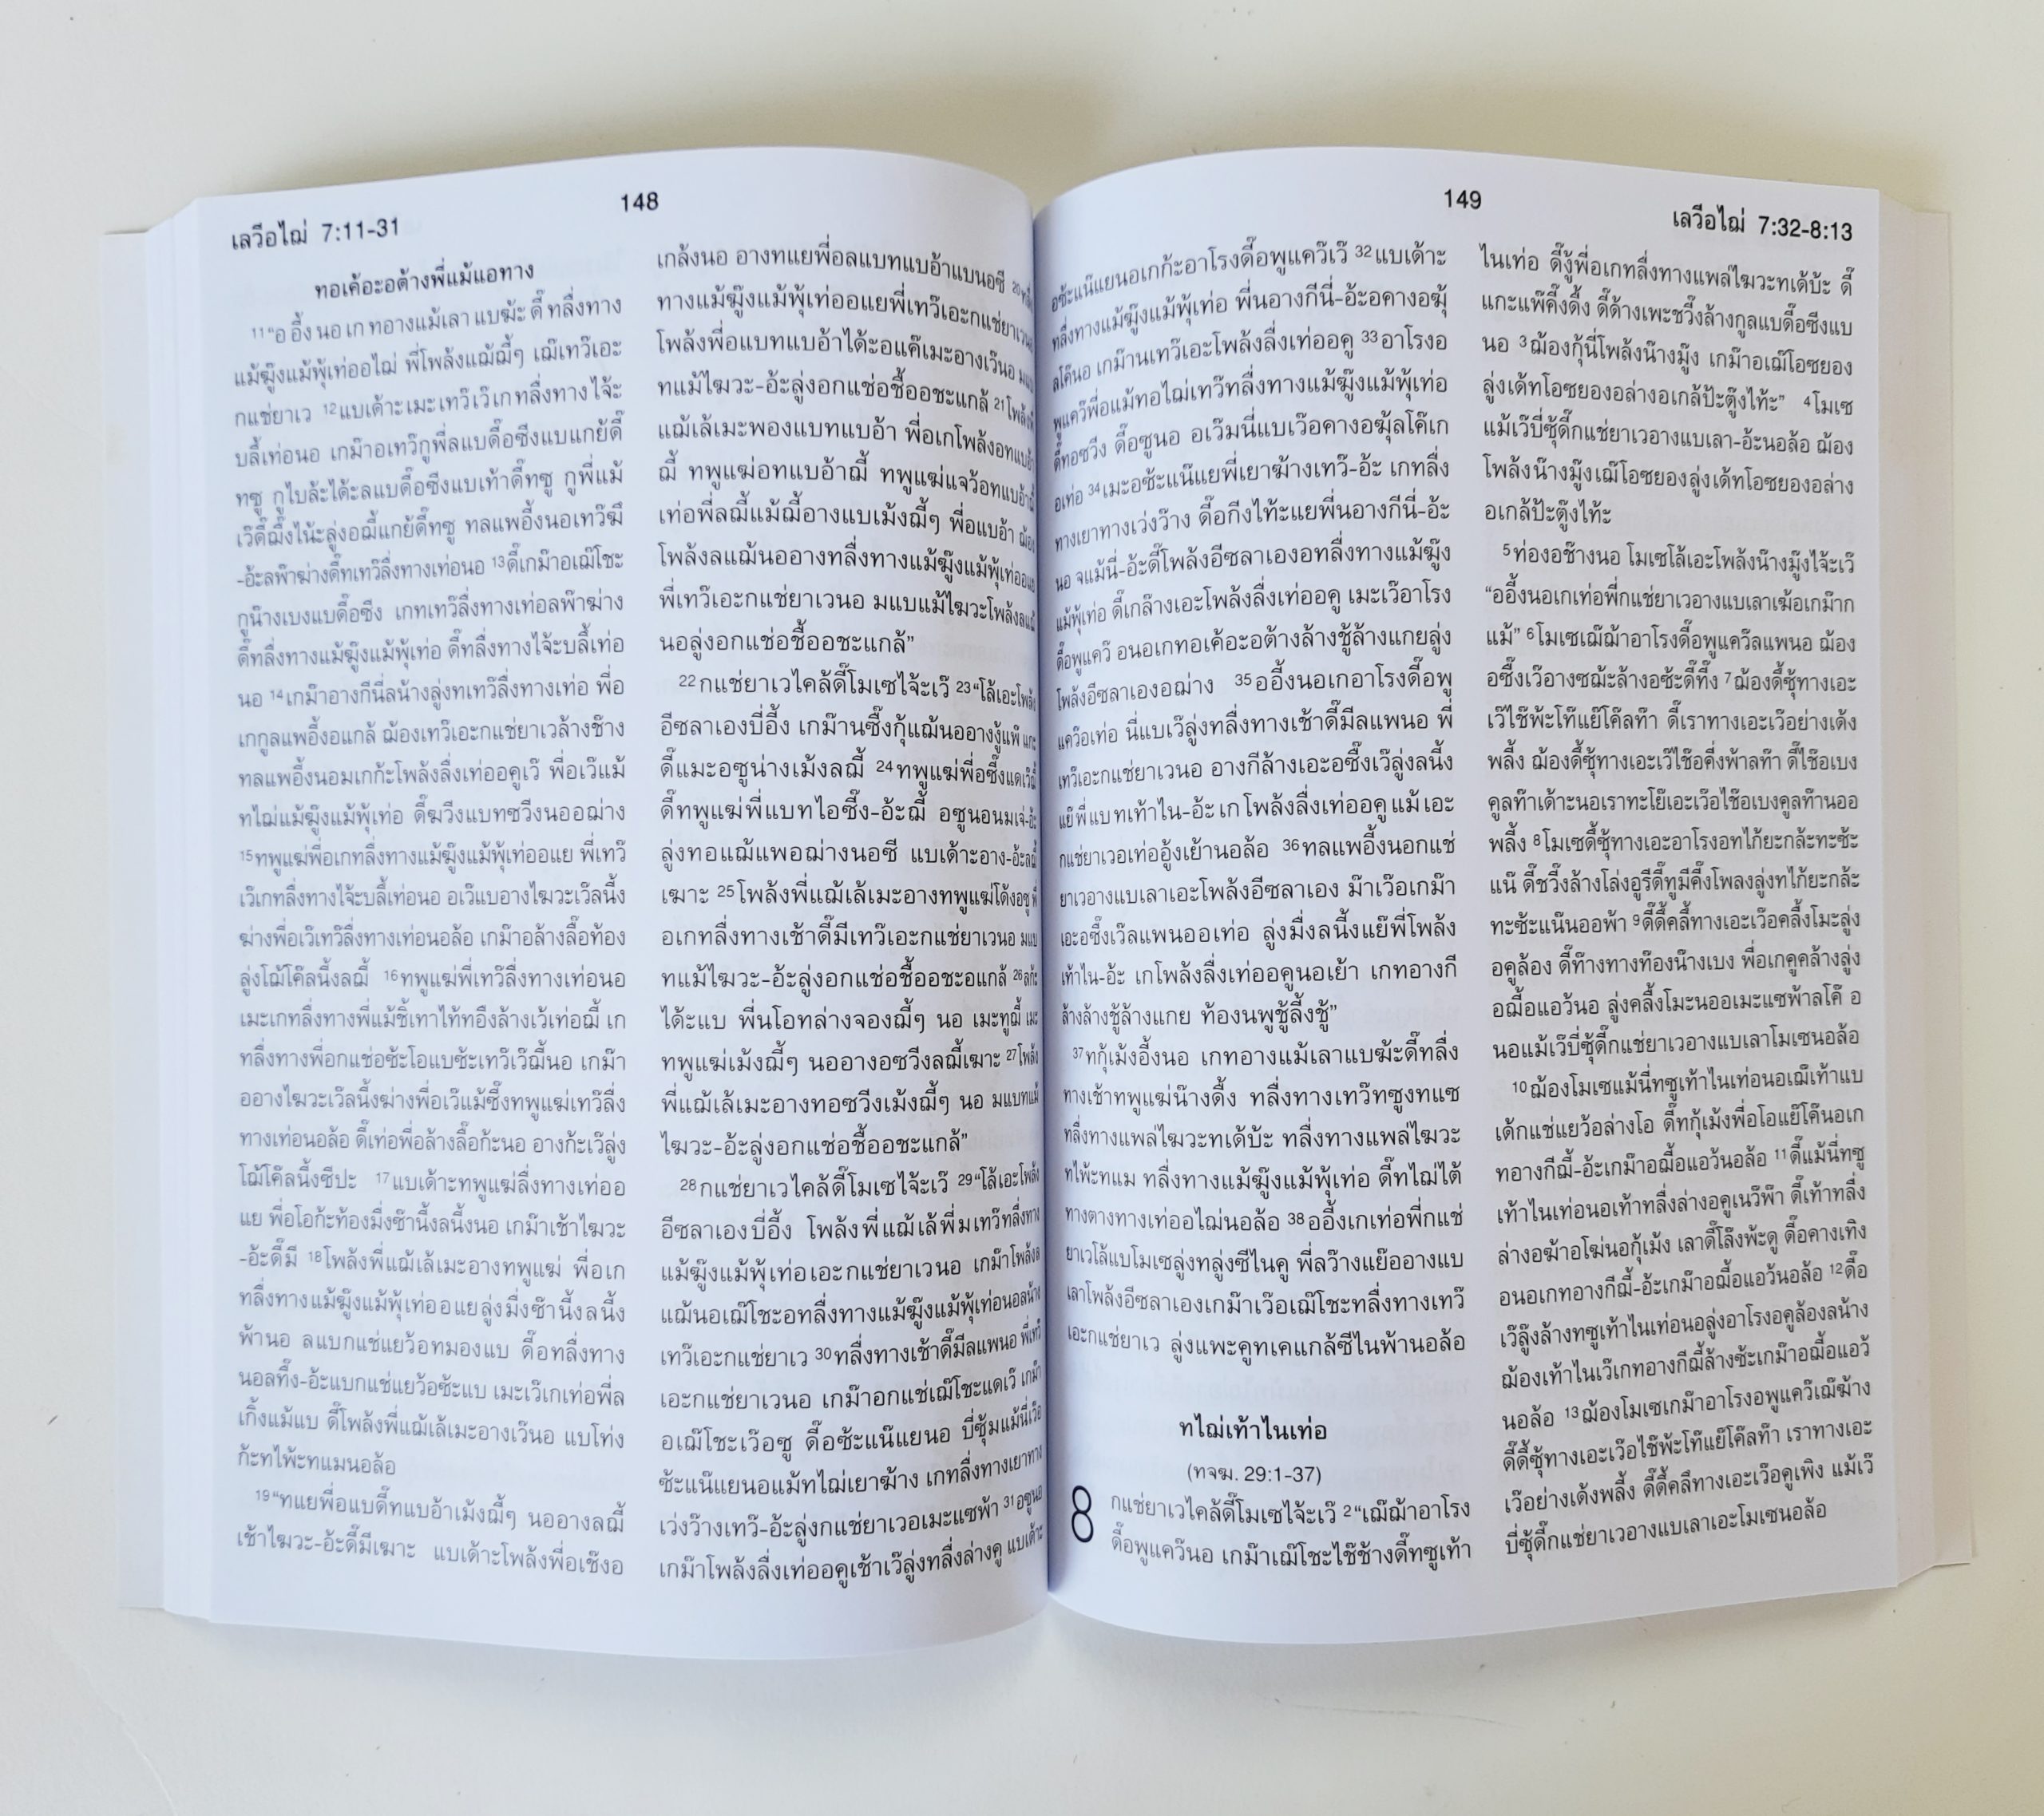 148
เลวีอไฌ่ 7:11-31
ทอเค้อะอต้างพี่แม้แอทาง
11“อ อึ้ง นอ เก ทอางแม้เลา แบฆ้ะ ดี๊ ทลี่งทาง
แม้ฆู๊งแม้พุ้เท่ออไฌ่ พี่โพล้งแฌ้ฌี้ๆ เฌ๊เทว๊เอะ
กแช่ยาเว 12แบเด้าะเมะเทว๊เว๊เกทลี่งทางไจ้ะ
บลี้เท่อนอ เกม๊าอเทว๊กูพี่ลแบดี๊อซึงแบแกย้ดี๊
ทซู กูไบล้ะได้ะลแบดี๊อซึงแบเท้าดี๊ทซู กูพี่แม้
กูน๊างเบงแบดี๊อซึง เกทเทว๊ลี่งทางเท่อลพ๊าฆ่าง
ดี๊ทลี่งทางแม้ฆู๊งแม้พุ้เท่อ ดี๊ทลี่งทางไจ้ะบลี้เท่อ
นอ 14เกม๊าอางกีนี่ลน้างลู่งทเทว๊ลี่งทางเท่อ พี่อ
เกกูลแพอึ้งอแกล้ ฌ้องเทว๊เอะกแช่ยาเวล้างช๊าง
ทลแพอึ้งนอมเกก้ะโพล้งลี่งเท่ออคูเว๊ พี่อเว๊แม้
ทไฌ่แม้ฆู๊งแม้พุ้เท่อ ดี๊ฆวีงแบทซวีงนออฌ่าง
15ทพูแฆ่พี่อเกทลี่งทางแม้ฆู๊งแม้พุ้เท่ออแย พี่เทว๊
เว๊เกทลี่งทางไจ้ะบลี้เท่อนอ อเว๊แบอางไฆวะเว๊ลนี้ง
ฆ่างพี่อเว๊เทว๊ลี่งทางเท่อนอล้อ เกม๊าอล้างลื้อท้อง
ลู่งโฌ้โค๊ลนี้งลฌี้ 16ทพูแฆ่พี่เทว๊ลี่งทางเท่อนอ
เมะเกทลี่งทางพี่แม้ชิ้เทาไท้ทอึงล้างเว้เท่อฌี้ เก
ทลี่งทางพี่อกแช่อซ้ะโอแบซ้ะเทว๊เว๊ฌี้นอ เกม๊า
ออางไฆวะเว๊ลนี้งฆ่างพี่อเว๊แม้ซึ๊งทพูแฆ่เทว๊ลี่ง
ทางเท่อนอล้อ ดี๊เท่อพี่อล้างลื้อก้ะนอ อางก้ะเว๊ลู่ง
โฌ้โค๊ลนี้งซีปะ 17แบเด้าะทพูแฆ่ลี่งทางเท่ออ
แย พี่อโอก้ะท้องมี่งซ๊านี้งลนี้งนอ เกม๊าเช้าไฆวะ
-อ้ะดี๊มี 18โพล้งพี่แฌ้เล้เมะอางทพูแฆ่ พี่อเก
ทลี่งทางแม้ฆู๊งแม้พุ้เท่ออแยลู่งมี่งซ๊านี้งลนี้ง
พ้านอ ลแบกแช่แยว้อทมองแบ ดี๊อทลี่งทาง
นอลทึ๊ง-อ้ะแบกแช่แยว้อซ้ะแบ เมะเว๊เกเท่อพี่ล
เกิ้งแม้แบ ดี๊โพล้งพี่แฌ้เล้เมะอางเว๊นอ แบโท่ง
ก้ะทไพ้ะทแมนอล้อ
19“ทแยพี่อแบดี๊ทแบอ้าเม้งฌี้ๆ นออางลฌี้
เช้าไฆวะ-อ้ะดี๊มีเฆาะ แบเด้าะโพล้งพี่อเช๊งอ
เกล้งนอ อางทแยพี่อลแบทแบอ้าแบนอซี
ทางแม้ฆู๊งแม้พุ้เท่ออแยพี่เทว๊เอะกแช่ยาเวนอ
โพล้งพี่อแบทแบอ้าได้ะอแค๊เมะอางเว๊นอ
ทแม้ไฆวะ-อ้ะลู่งอกแช่อชื้ออชะแกล้ 21โพล้งพี่
แฌ้เล้เมะพองแบทแบอ้า พี่อเกโพล้งอทแบอ้า
ฌี้ ทพูแฆ่อทแบอ้าฌี้ ทพูแฆ่แจว้อทแบอ้าฌี้
เท่อพี่ลฌี้แม้ฌี้อางแบเม้งฌี้ๆ พี่อแบอ้า ฌ้อง
โพล้งลแฌ้นออางทลี่งทางแม้ฆู๊งแม้พุ้เท่ออแย
พี่เทว๊เอะกแช่ยาเวนอ มแบแม้ไฆวะโพล้งลแฌ้
นอลู่งอกแช่อชื้ออชะแกล้”
22กแช่ยาเวไคล้ดี๊โมเซไจ้ะเว๊ 23“โล้เอะโพล้ง
อีซลาเองบี่อี้ง เกม๊านซี๊งกุ้แฌ้นออางงู้แพ๊ แกะ
ดี๊แมะอซูน่างเม้งลฌี้ 24ทพูแฆ่พี่อซี๊งแดเว๊ฌี้
ดี๊ทพูแฆ่พี่แบทไอซี๊ง-อ้ะฌี้ อซูนอนมเจ่-อ้ะ
ลู่งทอแฌ้แพอฌ่างนอซี แบเด้าะอาง-อ้ะลฌี้
เฆาะ 25โพล้งพี่แฌ้เล้เมะอางทพูแฆ่โด้งอซู พี่
อเกทลี่งทางเช้าดี๊มีเทว๊เอะกแช่ยาเวนอ มแบ
ทแม้ไฆวะ-อ้ะลู่งอกแช่อชื้ออชะอแกล้ 26ลก้ะ
ได้ะแบ พี่นโอทล่างจองฌี้ๆ นอ เมะทูฌี้ เมะ
ทพูแฆ่เม้งฌี้ๆ นออางอซวีงลฌี้เฆาะ 27โพล้ง
พี่แฌ้เล้เมะอางทอซวีงเม้งฌี้ๆ นอ มแบทแม้
ไฆวะ-อ้ะลู่งอกแช่อชื้ออชะแกล้”
28กแช่ยาเวไคล้ดี๊โมเซไจ้ะเว๊ 29“โล้เอะโพล้ง
อีซลาเองบี่อี้ง โพล้งพี่แฌ้เล้พี่มเทว๊ทลี่งทาง
แม้ฆู๊งแม้พุ้เท่อเอะกแช่ยาเวนอ เกม๊าโพล้งล
แฌ้นอเฌ๊โชะอทลี่งทางแม้ฆู๊งแม้พุ้เท่อนอลน้าง
เทว๊เอะกแช่ยาเว 30ทลี่งทางเช้าดี๊มีลแพนอ พี่เทว๊
เอะกแช่ยาเวนอ เกม๊าอกแช่เฌ๊โชะแดเว๊ เกม๊า
อเฌ๊โชะเว๊อซู ดี๊อซ้ะแน๊แยนอ บี่ซุ้มแม้นี่เว๊อ
ซ้ะแน๊แยนอแม้ทไฌ่เยาฆ้าง เกทลี่งทางเยาทาง
เว่งว๊างเทว๊-อ้ะลู่งกแช่ยาเวอเมะแซพ้า 31อซูนอ
เกม๊าโพล้งลี่งเท่ออคูเช้าเว๊ลู่งทลี่งล่างคู แบเด้าะ
149
เลวีอไฌ่ 7:32-8:13
อซ้ะแน๊แยนอเกก้ะอาโรงดี๊อพูแคว๊เว๊ 32แบเด้าะ
ทลี่งทางแม้ฆู๊งแม้พุ้เท่อ พี่นอางกีนี่-อ้ะอคางอฆุ้
ลโค๊นอ เกม๊านเทว๊เอะโพล้งลี่งเท่ออคู 33อาโรงอ
พูแคว๊พี่อแม้ทอไฌ่เทว๊ทลี่งทางแม้ฆู๊งแม้พุ้เท่อ
ดี๊ทอซวีง ดี๊อซูนอ อเว๊มนี่แบเว๊อคางอฆุ้ลโค๊เก
อเท่อ 34เมะอซ้ะแน๊แยพี่เยาฆ้างเทว๊-อ้ะ เกทลี่ง
ทางเยาทางเว่งว๊าง ดี๊อกีงไท้ะแยพี่นอางกีนี่-อ้ะ
นอ จแม้นี่-อ้ะดี๊โพล้งอีซลาเองอทลี่งทางแม้ฆู๊ง
แม้พุ้เท่อ ดี๊เกล๊างเอะโพล้งลี่งเท่ออคู เมะเว๊อาโรง
ดี๊อพูแคว๊ อนอเกทอเค้อะอต้างล้างชู้ล้างแกยลู่ง
โพล้งอีซลาเองอฌ่าง 35ออี้งนอเกอาโรงดี๊อพู
แคว๊อเท่อ นี่แบเว๊ลู่งทลี่งทางเช้าดี๊มีลแพนอ พี่
เทว๊เอะกแช่ยาเวนอ อางกีล้างเอะอซึ๊งเว๊ลู่งลนี้ง
แย๊พี่แบทเท้าไน-อ้ะ เกโพล้งลี่งเท่ออคูแม้เอะ
กแช่ยาเวอเท่ออู้งเย้านอล้อ 36ทลแพอึ้งนอกแช่
ยาเวอางแบเลาเอะโพล้งอีซลาเอง ม๊าเว๊อเกม๊า
เอะอซึ๊งเว๊ลแพนออเท่อ ลู่งมี่งลนี้งแย๊พี่โพล้ง
เท้าไน-อ้ะ เกโพล้งลี่งเท่ออคูนอเย้า เกทอางกี
ล้างล้างชู้ล้างแกย ท้องนพูชู้ลี้งชู้”
37ทกุ้เม้งอี้งนอ เกทอางแม้เลาแบฆ้ะดี๊ทลี่ง
ทางเช้าทพูแฆ่น๊างดี้ง ทลี่งทางเทว๊ทซูงทแซ
ทลี่งทางแพล่ไฆวะทเด้บ้ะ ทลี่งทางแพล่ไฆวะ
ทไพ้ะทแม ทลี่งทางแม้ฆู๊งแม้พุ้เท่อ ดี๊ทไฌ่ได้
ทางตางทางเท่ออไฌ่นอล้อ 38ออี้งเกเท่อพี่กแช่
ยาเวโล้แบโมเซลู่งทลู่งซีไนคู พี่ลว๊างแย๊ออางแบ
เลาโพล้งอีซลาเองเกม๊าเว๊อเฌ๊โชะทลี่งทางเทว๊
เอะกแช่ยาเว ลู่งแพะคูทเคแกล้ซีไนพ้านอล้อ
ทไฌ่เท้าไนเท่อ
(ทจฆ. 29:1-37)
8 กแช่ยาเวไคล้ดี๊โมเซไจ้ะเว๊ 2“เฌ๊ฌ้าอาโรง
ดี๊อพูแคว๊นอ เกม๊าเฌ๊โชะไช๊ช้างดี๊ทซูเท้า
ไนเท่อ ดี๊งู้พี่อเกทลี่งทางแพล่ไฆวะทเด้บ้ะ ดี๊
แกะแพ๊คี๊งดี้ง ดี๊ด้างเพะชวี๊งล้างกูลแบดี๊อซึงแบ
นอ 3ฌ้องกุ้นี่โพล้งน๊างมู๊ง เกม๊าอเฌ๊โอซยอง
ลู่งเด้ทโอซยองอล่างอเกล้ป้ะตู๊งไท้ะ” 4โมเซ
แม้เว๊บี่ซุ้ดี๊กแช่ยาเวอางแบเลา-อ้ะนอล้อ ฌ้อง
โพล้งน๊างมู๊งเฌ๊โอซยองลู่งเด้ทโอซยองอล่าง
อเกล้ป้ะตู๊งไท้ะ
5ท่องอช๊างนอ โมเซโล้เอะโพล้งน๊างมู๊งไจ้ะเว๊
“ออี้งนอเกเท่อพี่กแช่ยาเวอางแบเลาเฆ้อเกม๊าก
แม้” 6โมเซเฌ๊ฌ้าอาโรงดี๊อพูแคว๊ลแพนอ ฌ้อง
อซึ๊งเว๊อางซฌ้ะล้างอซ้ะดี๊ที๊ง 7ฌ้องดี้ชุ้ทางเอะ
เว๊ไช๊พ้ะโท๊แย๊โค๊ลท๊า ดี๊เราทางเอะเว๊อย่างเด้ง
พลี้ง ฌ้องดี้ชุ้ทางเอะเว๊ไช๊อคี่งพ้าลท๊า ดี๊ไช๊อเบง
คูลท๊าเด้าะนอเราทะโย๊เอะเว๊อไช๊อเบงคูลท๊านออ
พลี้ง 8โมเซดี้ชุ้ทางเอะอาโรงอทไก๊ยะกล้ะทะซ้ะ
แน๊ ดี๊ชวี๊งล้างโล่งอูรีดี๊ทูมีคี๊งโพลงลู่งทไก๊ยะกล้ะ
ทะซ้ะแน๊นออพ้า 9ดี๊ดี้คลี้ทางเอะเว๊อคลี้งโมะลู่ง
อคูล้อง ดี๊ท๊างทางท๊องน๊างเบง พี่อเกคูคล้างลู่ง
อฌี้อแอว้นอ ลู่งคลี้งโมะนออเมะแซพ้าลโค๊ อ
นอแม้เว๊บี่ซุ้ดี๊กแช่ยาเวอางแบเลาโมเซนอล้อ
10ฌ้องโมเซแม้นี่ทซูเท้าไนเท่อนอเฌ๊เท้าแบ
เด้กแช่แยว้อล่างโอ ดี๊ทกุ้เม้งพี่อโอแย๊โค๊นอเก
ทอางกีฌี้-อ้ะเกม๊าอฌี้อแอว้นอล้อ 11ดี๊แม้นี่ทซู
เท้าไนเท่อนอเท้าทลี่งล่างอคูเนว๊พ๊า ดี๊เท้าทลี่ง
ล่างอฆ้าอโฆ่นอกุ้เม้ง เลาดี๊โล๊งพ้ะดู ดี๊อคางเทิง
อนอเกทอางกีฌี้-อ้ะเกม๊าอฌี้อแอว้นอล้อ 12ดี๊อ
เว๊ลู๊งล้างทซูเท้าไนเท่อนอลู่งอาโรงอคูล้องลน้าง
ฌ้องเท้าไนเว๊เกทอางกีฌี้ล้างซ้ะเกม๊าอฌี้อแอว้
นอล้อ 13ฌ้องโมเซเกม๊าอาโรงอพูแคว๊เฌ๊ฆ้าง
ดี๊ดี้ชุ้ทางเอะเว๊อไช๊พ้ะโท๊แย๊โค๊ลท๊า เราทางเอะ
เว๊อย่างเด้งพลี้ง ดี๊ดี้คลีทางเอะเว๊อคูเพิง แม้เว๊
บี่ซุ้ดี๊กแช่ยาเวอางแบเลาเอะโมเซนอล้อ